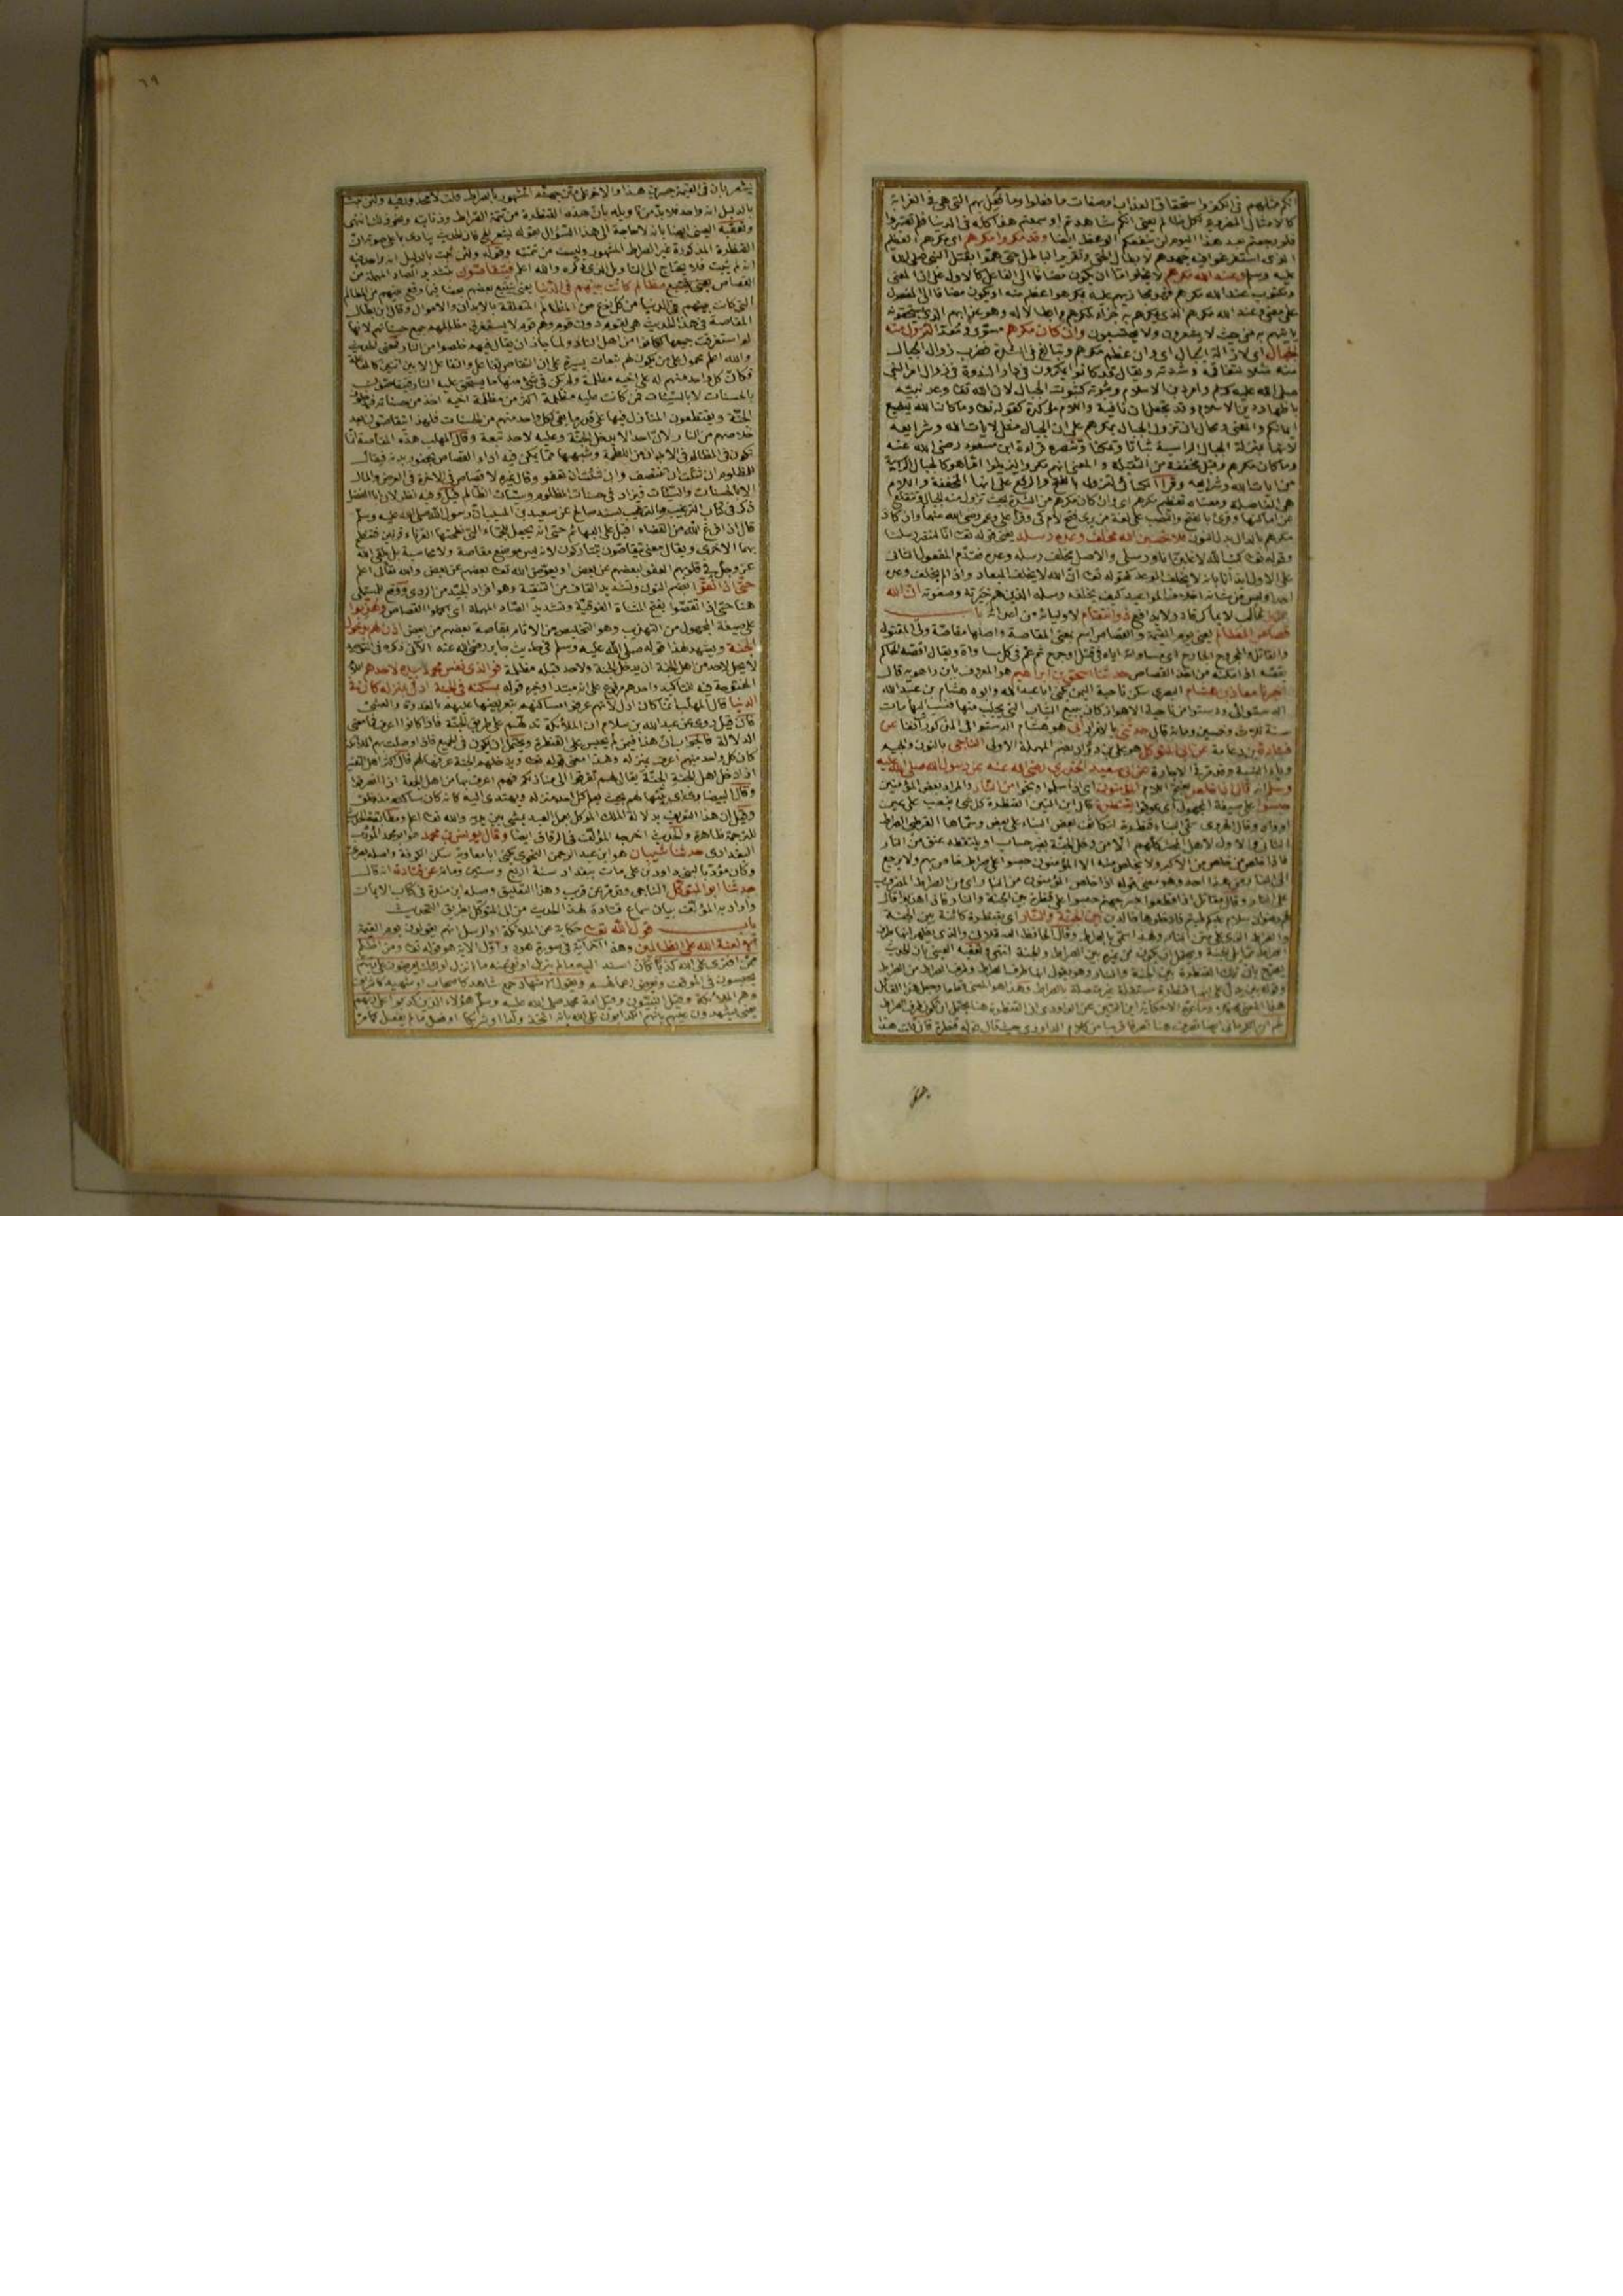 انكم مثلهم في الكفر واستحقاق العذاب وصفات ما فعلوا وما فعل بهم التي هي في الغرابة
كالامثال المضروبة لكل ظالم يعني انكم شاهدتم او سمعتم هذا كله في الدنيا فلم تعتبروا
فلو رجعتم بعد هذا اليوم لن ينفعكم الوعظ ايضا وقد مكروا مكرهم اي مكرهم العظيم
الذي استفرغوا فيه جهدهم لابطال الحق وتقرير الباطل حتى هموا بقتل النبي صلى الله
عليه وسلم وعند الله مكرهم لا يخلو اما ان يكون مضافا الى الفاعل كالاول على ان المعنى
ومكتوب عند الله مكرهم فهو مجازيهم عليه بمكر هو اعظم منه او يكون مضافا الى المفعول
على معنى وعند الله مكرهم الذي يمكرهم به جزاء لمكرهم وابطالا له وهو عذابهم الذي يستحقونه
يأتيهم به من حيث لا يشعرون ولا يحتسبون وان كان مكرهم مسوى ومعدا لتزول منه
الجبال اي لازالة الجبال اي وان عظم مكرهم وتبالغ في الشدة فضرب زوال الجبال
منه مثلا لتفاقمه وشدته ويقال قد كانوا يمكرون في دار الندوة في زوال امر النبي
صلى الله عليه وسلم وامر دين الاسلام وثبوته كثبوت الجبال لان الله تعالى وعد نبيه
باظهار دين الاسلام وقد يجعل ان نافية واللام مؤكدة كقوله تعالى وما كان الله ليضيع
ايمانكم والمعنى ومحال ان تزول الجبال بمكرهم على ان الجبال مثل لآيات الله وشرايعه
لانها بمنزلة الجبال الراسية ثباتا وتمكنا وتنصره قراءة ابن مسعود رضي الله عنه
وما كان مكرهم وقيل مخففة من الثقيلة والمعنى انهم مكروا ليزيلوا ما هو كالجبال الراسية
من آيات الله وشرايعه وقرأ الكسائي لتزول بالفتح والرفع على انها المخففة واللام
هي الفاصلة ومعناه تعظيم مكرهم اي وان كان مكرهم من الشدة بحيث تزول منه الجبال وتنقلع
عن اماكنها وقرئ بالفتح والنصب على لغة من يرى فتح لام كي وقرأ علي وعمر رضي الله عنهما وان كاد
مكرهم بالدال بدل النون فلا تحسبن الله مخلف وعده رسله يعني قوله تعالى انا لننصر رسلنا
وقوله تعالى كتب الله لاغلبن انا ورسلي والاصل مخلف رسله وعده فقدم المفعول الثاني
على الاول ايذانا بانه لا يخلف الوعد كقوله تعالى ان الله لا يخلف الميعاد واذا لم يخلف وعده
احدا وليس من شأنه اخلاف المواعيد كيف يخلفه رسله الذين هم خيرته وصفوته ان الله
عزيز غالب لا يماكر قادر لا يدافع ذو انتقام لاوليائه من اعدائه باب
قصاص المظالم يعني يوم القيمة والقصاص اسم بمعنى المقاصة واصلها مقاصة ولي المقتول
والقاتل والمجروح والجارح اي مساواته اياه في قتل او جرح ثم عم في كل مساواة ويقال اقصه الحاكم
يقصه اذا مكنه من اخذ القصاص حدثنا اسحق بن ابراهيم هو المعروف بابن راهويه قال
اخبرنا معاذ بن هشام البصري سكن ناحية اليمن يكنى ابا عبد الله وابوه هشام بن عبد الله
الدستوائي ودستوا من ناحية الاهواز كان يبيع الثياب التي يجلب منها فنسب اليها مات
سنة ثلاث وخمسين ومائة قال حدثني بالافراد ابي هو هشام الدستوائي المذكور آنفا عن
قتادة بن دعامة عن ابي المتوكل هو علي بن دؤاد بضم المهملة الاولى الناجي بالنون والجيم
وياء النسبة وقد مر في الاجارة عن ابي سعيد الخدري رضي الله عنه عن رسول الله صلى الله عليه
وسلم انه قال اذا خلص بفتح اللام المؤمنون اي اذا سلموا ونجوا من النار والمراد بعض المؤمنين
حبسوا على صيغة المجهول اي عوقوا بقنطرة قال ابن التين القنطرة كل شيء ينصب على عين
او واد وقال الهروي سمي البناء قنطرة لتكاثف بعض البناء على بعض وسماها القرطبي الصراط
الثاني والاول لاهل المحشر كلهم الا من دخل الجنة بغير حساب او يلتقطه عنق من النار
فاذا خلص من خلص من الاكبر ولا يخلص منه الا المؤمنون حبسوا على صراط خاص بهم ولا يرجع
الى النار من هذا احد وهو معنى قوله اذا خلص المؤمنون من النار اي من الصراط المضروب
على النار وقال مقاتل اذا قطعوا جسر جهنم حبسوا على قنطرة بين الجنة والنار فاذا هذبوا قال
لهم رضوان سلام عليكم طبتم فادخلوها خالدين بين الجنة والنار اي بقنطرة كائنة بين الجنة
والصراط الذي على متن النار ولهذا سمي بالصراط وقال الحافظ العسقلاني والذي يظهر انها طرف
الصراط مما يلي الجنة ويحتمل ان يكون من غيره بين الصراط والجنة انتهى وتعقبه العيني بان الحديث
يصرح بان تلك القنطرة بين الجنة والنار وهو يقول انها طرف الصراط وطرف الصراط من الصراط
هذا
يشعر بان في القيمة جسرين هذا والآخر على متن جهنم المشهور بالصراط قلت لا محذور فيه ولئن ثبت
بالدليل انه واحد فلا بد من تأويله بان هذه القنطرة من تتمة الصراط وذنابته ونحو ذلك انتهى
وتعقبه العيني ايضا بانه لا حاجة الى هذا السؤال بقوله يشعر الخ فان الحديث ينادي باعلى صوته ان
القنطرة المذكورة غير الصراط المشهور وليست من تتمته وقوله ولئن ثبت بالدليل انه واحد فيه
انه لم يثبت فلا يحتاج الى التأويل الذي ذكره والله اعلم فيتقاصون بتشديد الصاد المهملة من
القصاص يعني يتتبع مظالم كانت بينهم في الدنيا يعني يتتبع بعضهم بعضا فيما وقع بينهم من المظالم
التي كانت بينهم في الدنيا من كل نوع من المظالم المتعلقة بالابدان والاموال وقال ابن بطال
المقاصة في هذا الحديث هي لقوم دون قوم وهم قوم لا يستغرق مظالمهم جميع حسناتهم لانها
لو استغرقت جميعها لكانوا من اهل النار ولما جاز ان يقال فيهم خلصوا من النار فمعنى الحديث
والله اعلم محمول على من يكون لهم تبعات يسيرة على ان التقاص تفاعل والتفاعل الا بين اثنين كالمقاتلة
فكان كل واحد منهم له على اخيه مظلمة ولم يكن في شيء منها ما يستحق عليه النار فيتقاصون
بالحسنات لا بالسيئات فمن كانت عليه مظلمة اكثر من مظلمة اخيه اخذ من حسناته
الجنة ويقتطعون المنازل فيها على قدر ما بقي لكل واحد منهم من الحسنات فلهذا يتقاصون بعد
خلاصهم من النار لان احدا لا يدخل الجنة وعليه لاحد تبعة وقال المهلب هذه المقاصة انما
تكون في المظالم في الابدان من اللطمة وشبهها مما يمكن فيه اداء القصاص بحضور بدنه فيقال
للمظلوم ان شئت ان تنتصف وان شئت ان تعفو وقال غيره لا قصاص في الآخرة في العرض والمال
الا بالحسنات والسيئات فيزاد في حسنات المظلوم وسيئات الظالم
ذكر في كتاب الترغيب والترهيب بسند صالح عن سعيد بن المسيب ان رسول الله صلى الله عليه وسلم
قال اذا فرغ الله من القضاء اقبل على البهائم حتى انه يجعل للجماء التي نطحتها القرناء قرنين فتنطح
بهما الاخرى ويقال معنى يتقاصون يتتاركون لانه ليس موضع مقاصة ولا محاسبة بل يلقي الله
عز وجل في قلوبهم العفو لبعضهم عن بعض او يعوض الله تعالى بعضهم عن بعض والله تعالى اعلم
حتى اذا نقوا بضم النون وتشديد القاف من التنقية وهو افراد الجيد من الردي ووقع للمستملي
هنا حتى اذا تقصوا بفتح المثناة الفوقية وتشديد الصاد المهملة اي اكملوا القصاص وهذبوا
على صيغة المجهول من التهذيب وهو التخليص من الآثام بمقاصة بعضهم من بعض اذن لهم بدخول
الجنة ويشهد لهذا قوله صلى الله عليه وسلم في حديث جابر رضي الله عنه الآتي ذكره في التوحيد
لا يحل لاحد من اهل الجنة ان يدخل الجنة ولاحد قبله مظلمة فوالذي نفس محمد بيده لاحدهم اللام
المفتوحة فيه للتأكيد واحدهم مرفوع على انه مبتدأ وخبره قوله بمسكنه في الجنة ادل بمنزله كان في
الدنيا قال المهلب انما كان ادل لانهم عرفوا مساكنهم بتعريضها عليهم بالغدو والعشي
فان قيل روي عن عبد الله بن سلام ان الملائكة تدلهم على طريق الجنة فاذا كانوا اعرف فما معنى
الدلالة فالجواب ان هذا فيمن لم يحبس على القنطرة ويحتمل ان يكون في الجميع فاذا وصلت بهم الملائكة
كان كل واحد منهم اعرف بمنزله وهذا معنى قوله تعالى ويدخلهم الجنة عرفها لهم قال اكثر اهل التفسير
اذا دخل اهل الجنة الجنة يقال لهم تفرقوا الى منازلكم فهم اعرف بها من اهل الجمعة اذا انصرفوا
وقال البيضاوي بينها لهم بحيث يعلم كل احد منزله ويهتدي اليه كانه كان ساكنه منذ خلق
وقيل ان هذا التعريف بدلالة الملك الموكل بعمل العبد يمشي بين يديه والله تعالى اعلم ومطابقة الحديث
للترجمة ظاهرة والحديث اخرجه المؤلف في الرقاق ايضا وقال يونس بن محمد هو ابو محمد المؤدب
البغدادي حدثنا شيبان هو ابن عبد الرحمن النحوي يكنى ابا معاوية سكن الكوفة واصله بصري
وكان مؤدبا لبني داود بن علي مات ببغداد سنة اربع وستين ومائة عن قتادة انه قال
حدثنا ابو المتوكل الناجي وقد مر عن قريب وهذا التعليق وصله ابن مندة في كتاب الايمان
واراد به المؤلف بيان سماع قتادة لهذا الحديث من ابي المتوكل بطريق التحديث
باب قول الله تعالى حكاية عن الملائكة او الرسل انهم يقولون يوم القيمة
الا لعنة الله على الظالمين وهذا آخر آية في سورة هود واول الآية هو قوله تعالى ومن اظلم
ممن افترى على الله كذبا كان اسند اليه ما لم ينزل او نفى عنه ما انزل اولئك يعرضون على ربهم